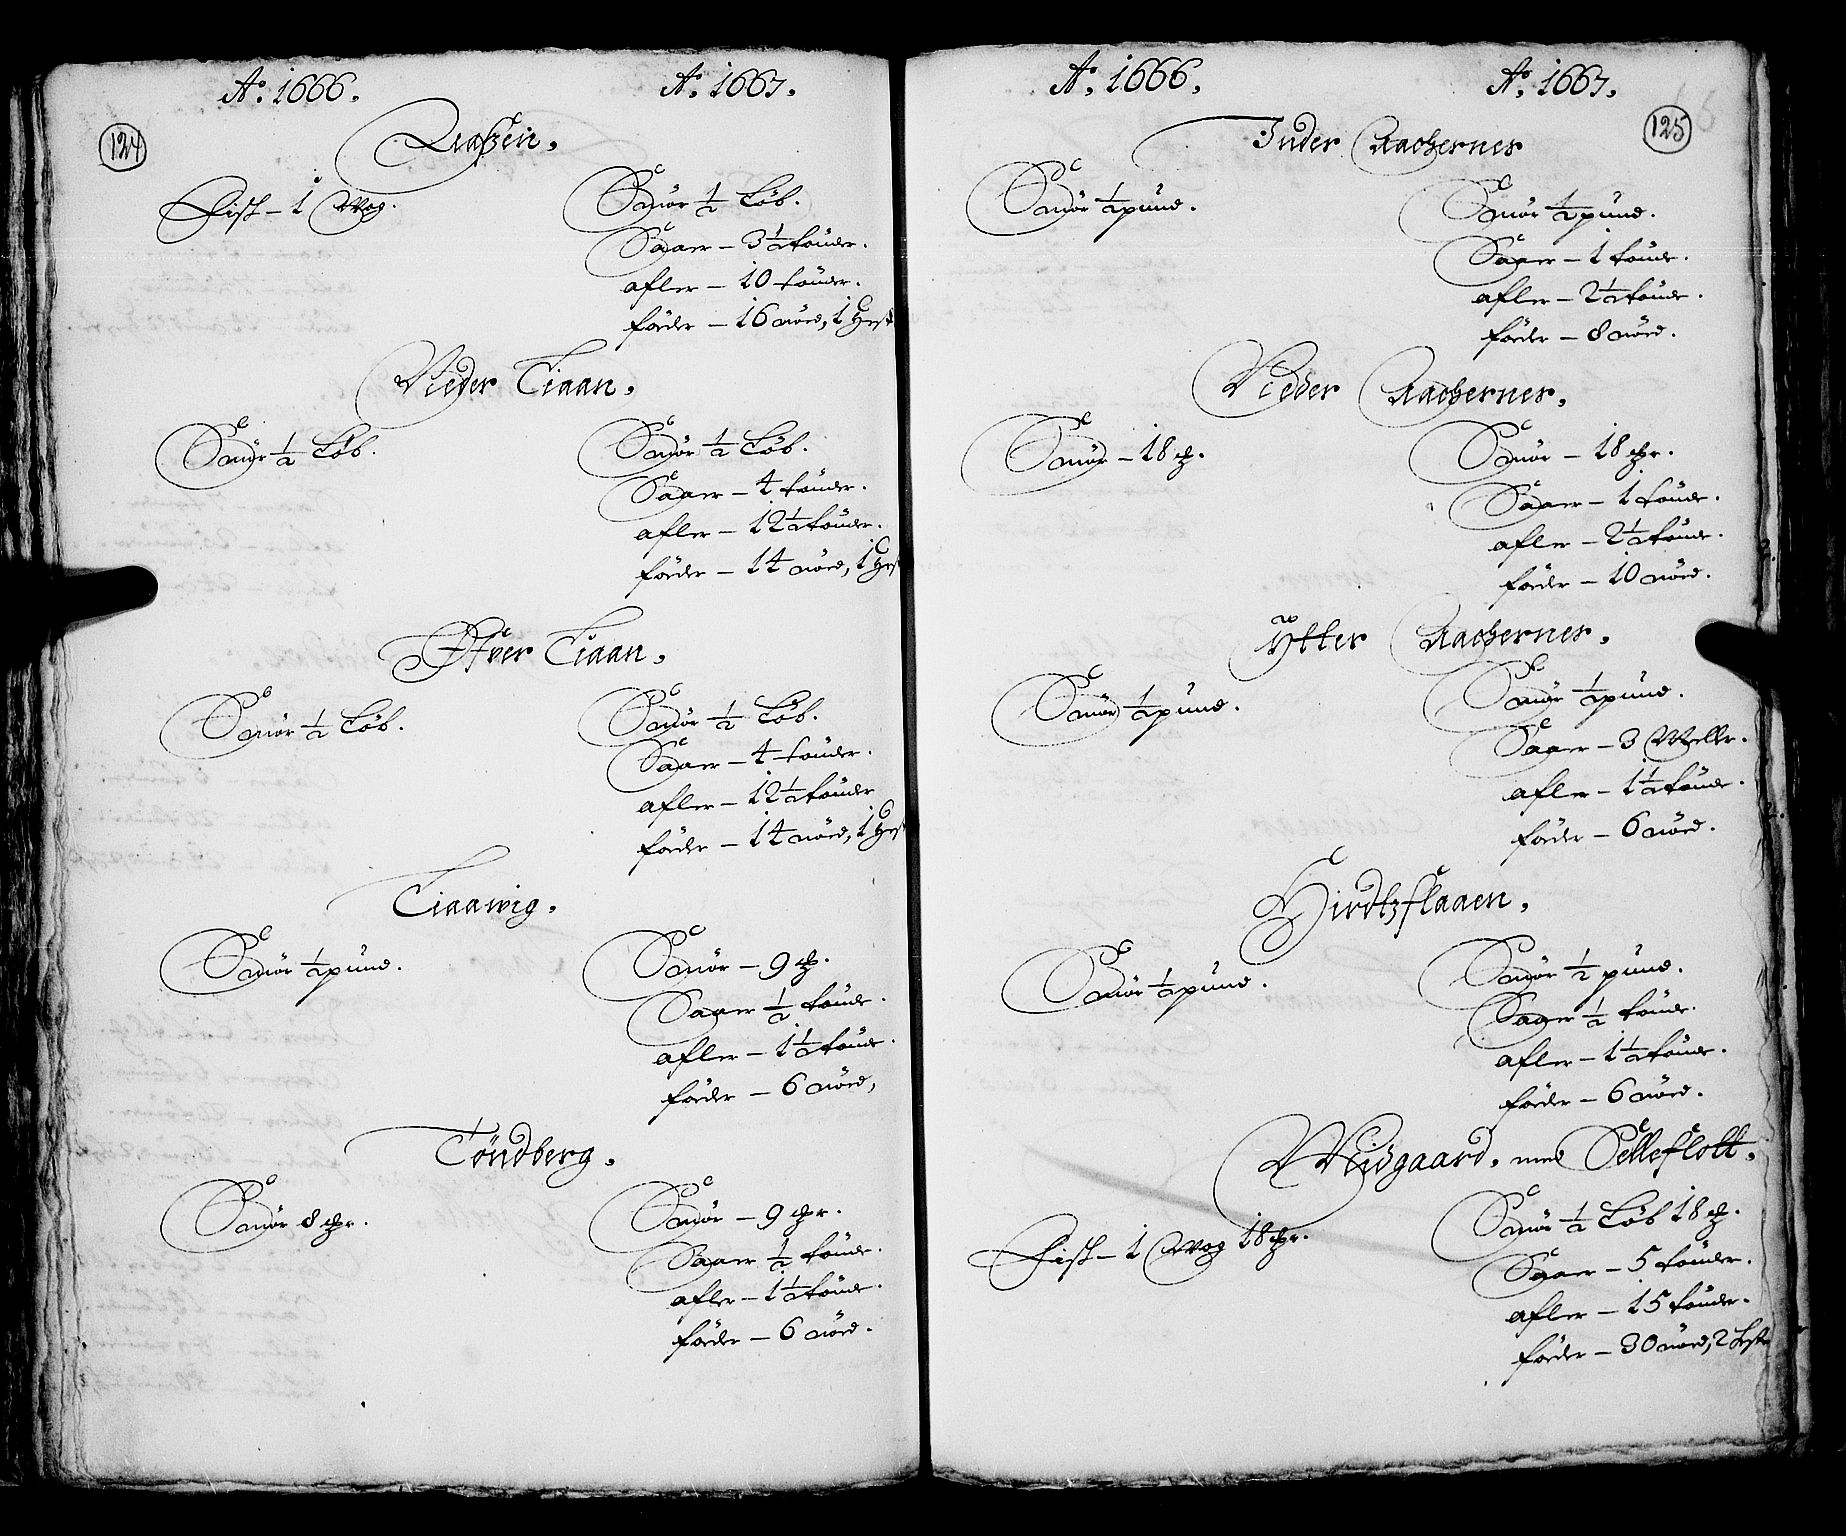 124
Aº. 1666. Aº. 1667.
Fisk – 1 Wog. Smör ½ Löb.
Saaer – 3½ tönder.
afler – 10 tönder.
föder – 16 nöed, 1 Hest
Neder Tiaan.
Smör ½ Löb. Smör ½ Löb.
Saaer – 4 tönder.
afler – 12½ tönder.
föder – 14 nöed, 1 Hest
Øfver Tiaan.
Smör ½ Löb. Smör ½ Löb.
Saaer – 4 tönder.
afler – 12½ tönder
föder – 14 nöed, 1 Hest
Tiaawig.
Smör ½ pund. Smör – 9 ℔.
Saaer ½ tönde.
afler – 1½ tönde.
föder – 6 nöed,
Töndberg.
Smör 8 ℔r. Smör – 9 ℔r.
Saaer ½ tönde.
afler – 1½ tönde.
föder – 6 nöed.
125
Aº. 1666. Aº. 1667.
Inder Aachernes
Smör ½ pund. Smör ½ pund.
Saaer – 1 tönde.
afler – 2½ tönde.
föder – 8 nöed.
Nedder Aachernes.
Smör – 18 ℔. Smör – 18 ℔r.
Saaer – 1 tönde.
afler – 2½ tönde.
föder – 10 nöed.
Ytter Aachernes.
Smör ½ pund. Smör ½ pund.
Saaer – 3 Weller.
afler – 1½ tönde.
föder – 6 nöed.
Hirdtzflaaen.
Smör ½ pund. Smör ½ pund.
Saaer ½ tönde.
afler – 1½ tönde.
föder – 6 nöed.
Midgaard. med Pelleflott.
Fisk – 1 Wog 18 ℔r. Smör ½ Löb 18 ℔.
Saaer – 5 tönder.
afler – 15 tönder.
föder – 30 nöed, 2 Heste